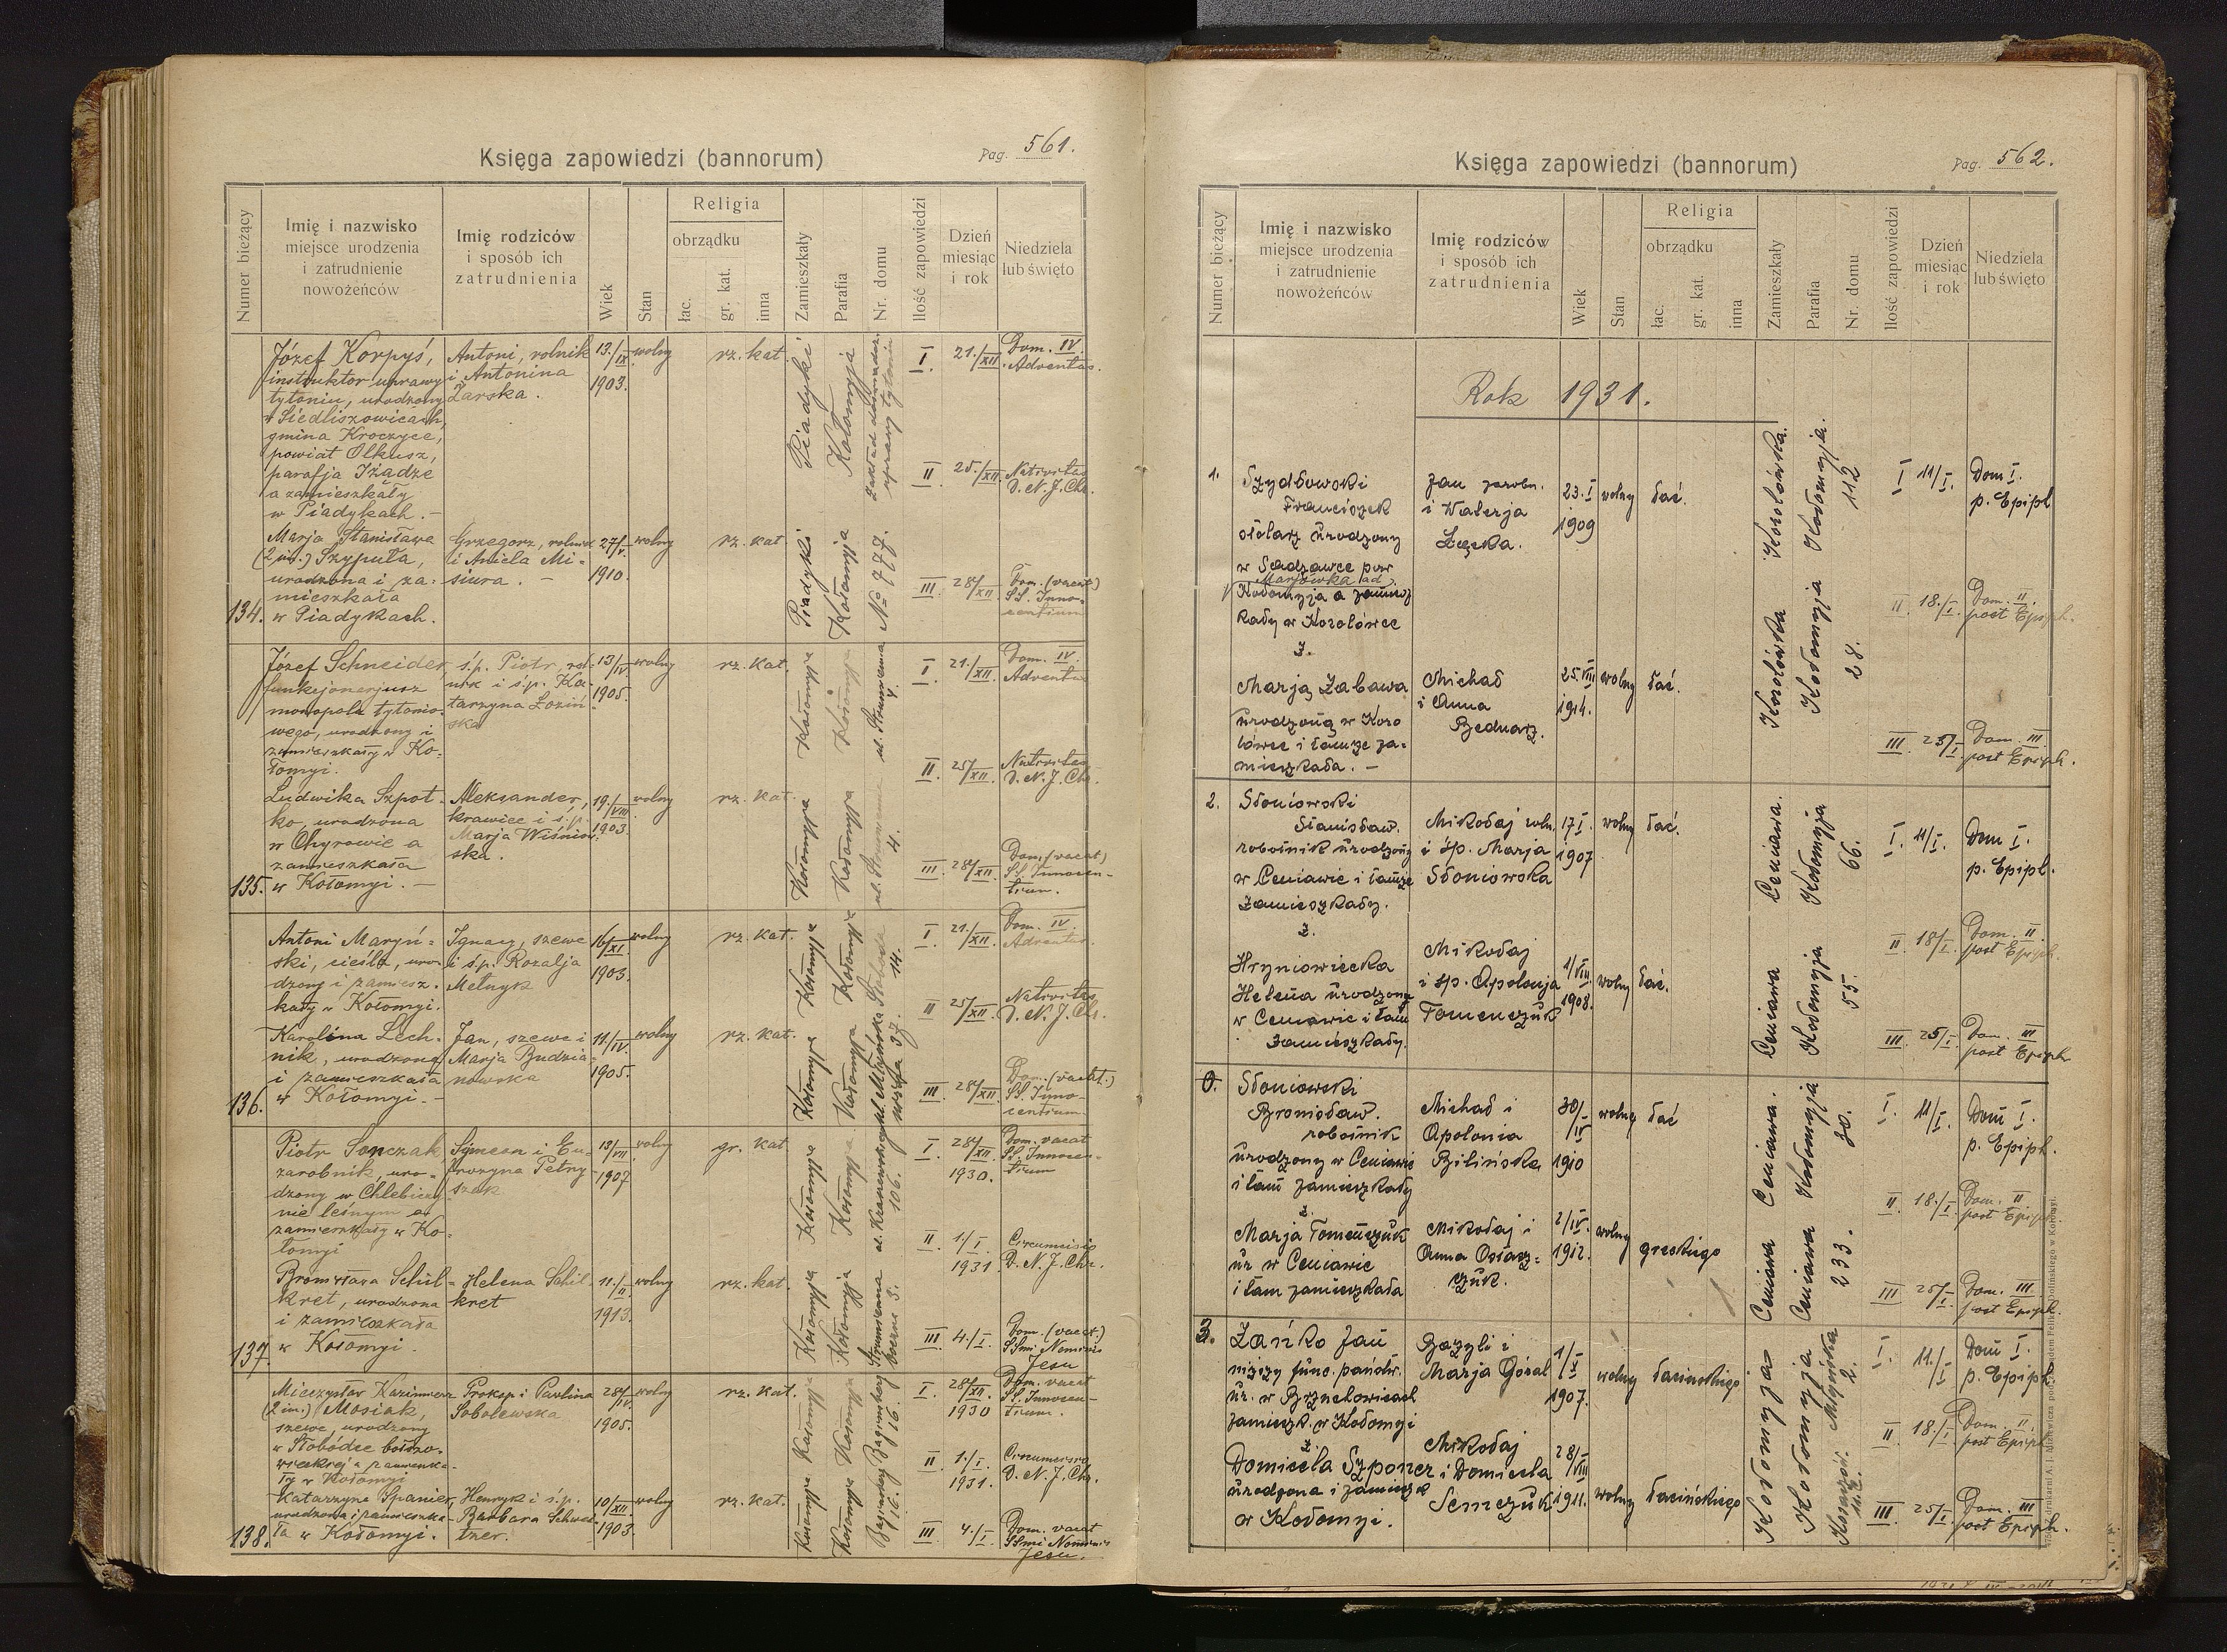 Księga zapowiedzi (bannorum)
Pag. 561.
Numer bieżący
Imię i nazwisko
miejsce urodzenia
i zatrudnienie
nowożeńców
Imię rodziców
i sposób ich
zatrudnienia
Wiek
Stan
Religia
obrządku
łac.
gr. kat.
inna
Zamieszkały
Parafia
Nr. domu
Ilość zapowiedzi
Dzień
miesiąc
i rok
Niedziela
lub święto
134.
Józef Korpyś,
instruktor uprawy
tytoniu, urodzony
w Siedliszowicach,
gmina Kroczyce,
powiat Olkusz,
parafja
a zamieszkały
w Piadykach. —
Antoni, rolnik
i Antonina
Żarska.
13./IX.
1903.
wolny
rz. kat.
Piadyki
Kołomyja
uprawy tytoniu
I. 21./XII. Dom. IV. Adventus.
II. 25./XII. Nativitas D. N. J. Chr.
III. 28/XII. Dom. (vacat) SS. Innocentium
Marja Stanisława
(2 im.) Szypuła,
urodzona i za-
mieszkała
w Piadykach.
Grzegorz, rolnik
i Aniela Mi-
siura. —
27/V.
1910.
wolny
rz. kat.
Piadyki
Kołomyja
No 777.
135.
Józef Schneider,
funkcjonarjusz
monopolu tytonio-
wego, urodzony i
zamieszkały w Ko-
łomyi.
ś.p. Piotr, rol-
nik i ś.p. Ka-
tarzyna Łoziń-
ska
13/IV.
1905.
wolny
rz. kat.
Kołomyja
Kołomyja
I. 21./XII. Dom. IV. Adventus
II. 25/XII. Nativitas D. N. J. Chr.
III. 28/XII. Dom. (vacat) SS. Innocentium.
Ludwika Szpot-
ko, urodzona
w Chyrowie a
zamieszkała
w Kołomyi. —
Aleksander,
krawiec i ś.p.
Marja Wiśniow-
ska.
19./VIII.
1903.
wolny
rz. kat.
Kołomyja
Kołomyja
4.
136.
Antoni Maryń-
ski, cieśla, uro-
dzony i zamiesz-
kały w Kołomyi.
Ignacy, szewc
i ś.p. Rozalja
Melnyk
16/XI.
1903.
wolny
rz. kat.
Kołomyja
Kołomyja
14.
I. 21./XII. Dom. IV. Adventus.
II. 25/XII. Nativitas D. N. J. Chr.
III. 28/XII. Dom. (vacat.) SS. Innocentium.
Karolina Lech-
nik, urodzona
i zamieszkała
w Kołomyi. —
Jan, szewc i
Marja Budzia-
nowska
11./IV.
1905.
wolny
rz. kat.
Kołomyja
Kołomyja
37.
137.
Piotr Senczak
zarobnik, uro-
dzony w Chlebiczy-
nie leśnym a
zamieszkały w Ko-
łomyi
Symeon i Eu-
frozyna Petry-
szak
13/VII
1907
wolny
gr. kat.
Kołomyja
Kołomyja
106.
I. 28/XII. 1930. Dom. vacat SS. Innocentium
II. 1./I. 1931. Circumcisio D. N. J. Chr.
III. 4./I. Dom. (vacat.) SSmi Nominis Jesu
Bronisława Schil-
kret, urodzona
i zamieszkała
w Kołomyi.
Helena Schil-
kret
11./II.
1913.
wolny
rz. kat.
Kołomyja
Kołomyja
138.
Mieczysław Kazimierz
(2 im.) Mosiak,
szewc, urodzony
w Słobódce
Prokop i Paulina
Sobolewska
28/IV.
1905.
wolny
rz. kat.
Kołomyja
Kołomyja
16.
I. 28/XII. 1930 Dom. vacat SS. Innocentium.
II. 1./I. 1931. Circumcisio D. N. J. Chr.
III. 4./I. Dom. vacat SSmi Nominis Jesu.
Katarzyna Spanier,
urodzona i zamieszka-
ła w Kołomyi.
Henryk i ś.p.
Barbara
10/XII.
1903.
wolny
rz. kat.
Kołomyja
Kołomyja
16.
Księga zapowiedzi (bannorum)
Pag. 562.
Numer bieżący
Imię i nazwisko
miejsce urodzenia
i zatrudnienie
nowożeńców
Imię rodziców
i sposób ich
zatrudnienia
Wiek
Stan
Religia
obrządku
łac.
gr. kat.
inna
Zamieszkały
Parafia
Nr. domu
Ilość zapowiedzi
Dzień
miesiąc
i rok
Niedziela
lub święto
Rok 1931.
1.
Szydłowski
Franciszek
stolarz urodzony
w Sadzawce pow
Marjówka ad
Kołomyja a zamiesz
kały w Korolówce
z.
Jan zarobn.
i Walerja
Łęcka.
23. I
1909
wolny
łać.
Korolówka
Kołomyja.
112
I 11/I. Dom I. p. Epiph
II 18./I. Dom. II. post Epiph.
III. 25/I. Dom. III post Epiph.
Marją Zabawa
urodzoną w Koro
lówce i tamże za-
mieszkała. —
Michał
i Anna
Bednarz.
25. VIII
1914.
wolny
łać.
Korolówka
Kołomyja
28.
2.
Słoniowski
Stanisław.
robotnik urodzony
w Ceniawie i tamże
zamieszkały.
z.
Mikołaj roln.
i śp. Marja
Słoniowska
17 I.
1907
wolny
łać.
Ceniawa.
Kołomyja
66.
I. 11/I. Dom I. p. Epiph.
II 18/I. Dom. II. post Epiph.
III. 25/I. Dom. III post Epiph
Hryniowiecka
Helena urodzona
w Ceniawie i tam
zamieszkały.
Mikołaj
i śp. Apolonja
Tomenczuk
1/VIII.
1908.
wolny
łać.
Ceniawa
Kołomyja
55.
0.
Słoniowski
Bronisław.
robotnik
urodzony w Ceniawie
i tam zamieszkały
z.
Michał i
Apolonia
Bilińska
30/IV
1910
wolny
łać
Ceniawa.
Kołomyja
30.
I. 11/I. Dom I. p. Epiph.
II 18./I. Dom. II post Epiph.
III 25/I. Dom. III. post Epiph.
Marja Tomeńczuk
ur w Ceniawie
i tam zamieszkała
Mikołaj i
Anna
2/IV.
1912.
wolny
greckiego
Ceniawa
Ceniawa
233.
3.
Zańko Jan
niższy func. państw.
ur. w
zamieszk. w Kołomyi
z.
Bazyli i
Marja Góral
1/X
1907.
wolny
łacińskiego
Kołomyja
Kołomyja
Młyńska
2.
I. 11./I Dom I. p. Epiph
II 18./I Dom. II. post Epiph.
III 25/I Dom. III post Epiph.
Domicela Szponer
urodzona i zamieszk
w Kołomyi.
Mikołaj
i Domicela
Semczuk
28/VIII
1911.
wolny
łacińskiego